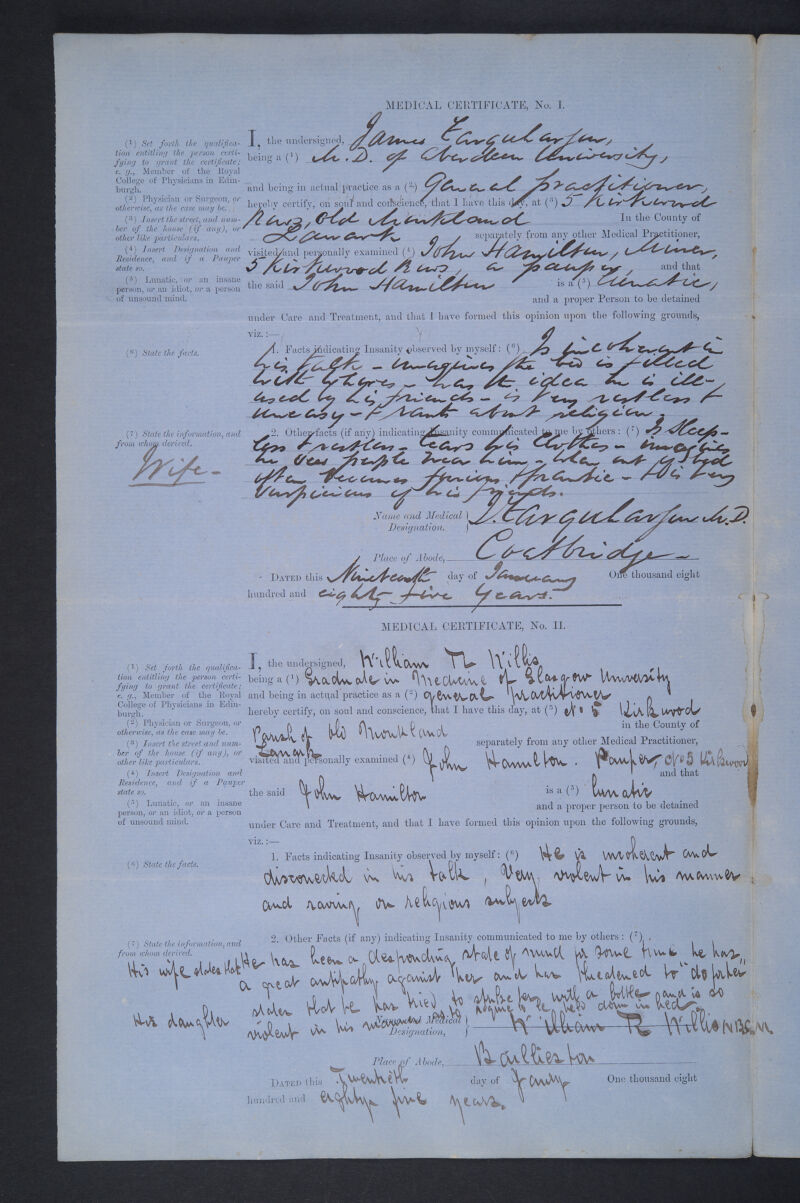 MEDICAL CERTIFICATE, No. I.
(1) Set forth the qualifica-
tion entitling the person certi-
fying to grant the certificate;
e. g., Member of the Royal
College of Physicians in Edin-
burgh.
(2) Physician or Surgeon, or
otherwise, as the case may be.
(3) Insert the street, and num-
ber of the house (if any), or
other like particulars.
(4) Insert Designation and
Residence, and if a Pauper
state so.
(5) Lunatic, or an insane
person, or an idiot, or a person
of unsound mind.
I, the undersigned, James Farquharson,
being a (1) M. D. of Aberdeen University,
and being in actual practice as a (2) General practitioner,
hereby certify, on soul and conscience, that I have this day, at (3) 5 Kirkwood
Rows, Old Monkland In the County of
Lanark separately from any other Medical Practitioner,
visited and personally examined (4) John Hamilton, Miner,
5 Kirkwood Rows, a pauper, and that
the said John Hamilton is a (5) Lunatic,
and a proper Person to be detained
under Care and Treatment, and that I have formed this opinion upon the following grounds,
viz.:—
(6) State the facts.
1. Facts indicating Insanity observed by myself: (6) Is incoherent in
his talk - imagines the bed is filled
with whores - has the idea he is ill-
used by his friends - is very restless &
uneasy - & rants about religion.
(7) State the information, and
from whom derived.
Wife -
2. Other facts (if any) indicating Insanity communicated to me by others: (7) Is sleep-
less & restless - tears his clothes - imagines
he sees people near him - when out of bed
often becomes furious & frantic - & is very
suspicious of his friends.
Name and Medical Designation. J. Farquharson M.D.
Place of Abode, Coatbridge -
DATED this Nineteenth day of January One thousand eight
hundred and eighty five years.
MEDICAL CERTIFICATE, No. II.
(1) Set forth the qualifica-
tion entitling the person certi-
fying to grant the certificate;
e. g., Member of the Royal
College of Physicians in Edin-
burgh.
(2) Physician or Surgeon, or
otherwise, as the case may be.
(3) Insert the street and num-
ber of the house (if any), or
other like particulars.
(4) Insert Designation and
Residence, and if a Pauper
state so.
(5) Lunatic, or an insane
person, or an idiot, or a person
of unsound mind.
I, the undersigned, William R Willis
being a (1) Graduate in Medicine of Glasgow University
and being in actual practice as a (2) general practitioner
hereby certify, on soul and conscience, that I have this day, at (3) No 5 Kirkwood
Parish of Old Monkland in the County of
Lanark separately from any other Medical Practitioner,
visited and personally examined (4) John Hamilton. Pauper, No 5 Kirkwood
and that
the said John Hamilton is a (5) lunatic
and a proper person to be detained
under Care and Treatment, and that I have formed this opinion upon the following grounds,
viz.:—
(6) State the facts.
1. Facts indicating Insanity observed by myself: (6) He is incoherent and
disconected in his talk, Very violent in his manner
and raving on religious subjects
(7) State the information, and
from whom derived.
2. Other Facts (if any) indicating Insanity communicated to me by others: (7)
His wife states that He has been a desponding state of mind for some time, he has
a great antipathy against her and has threatened to "do for her"
His daughter states that he has tried to strike her with a bottle and is so
violent in his manner as to require to be held down in bed
Name and Medical Designation, William R Willis M.B.C.M
Place of Abode, Baillieston
DATED this Twentieth day of Jany One thousand eight
hundred and eighty five years.